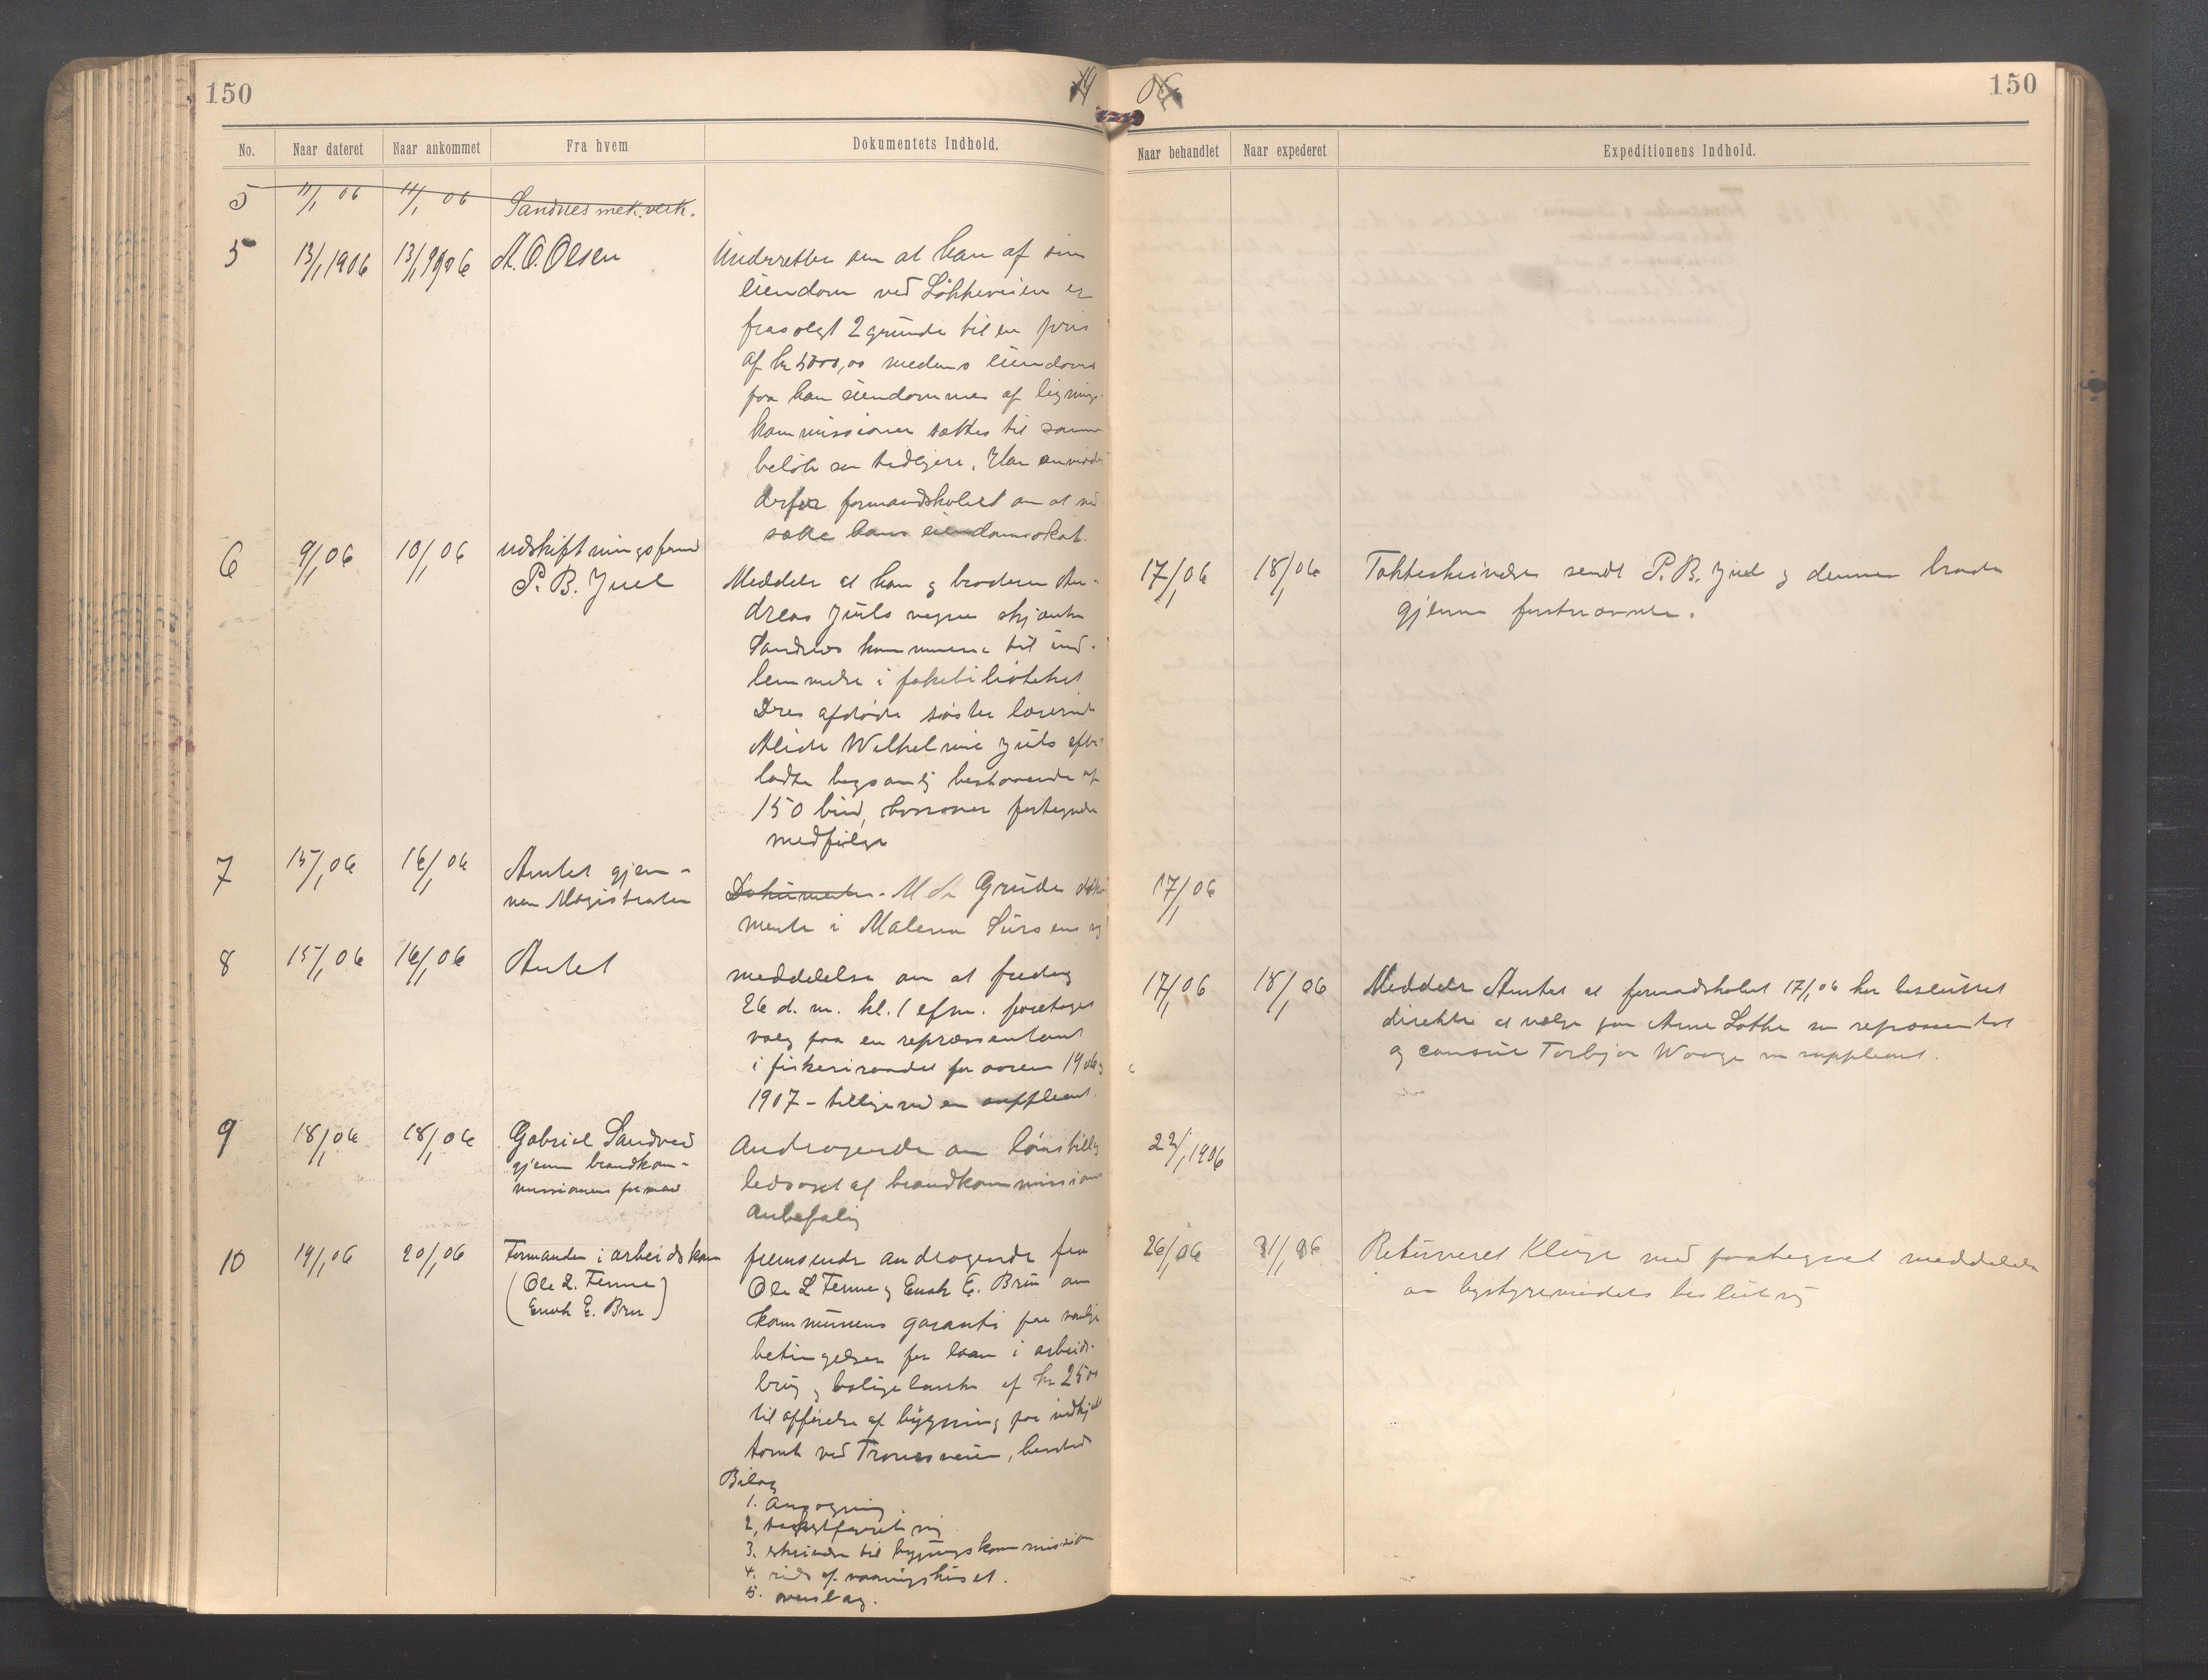 150
19
06
150
No.
Naar dateret
Naar ankommet
Fra hvem
Dokumentets Indhold.
Naar behandlet
Naar expederet
Expeditionens Indhold.
5 11/1 06 11/1 06 Sandnes mek. verk.
5 13/1 1906 13/1 1906 A. O. Olsen
Underretter om at han af sin
eiendom ved Lökkeveien er
frasolgt 2 grunde til en pris
af kr 5000,00 medens eiendoms
paa han eiendommen af lignings-
kommissionen sættes til samme
beløb som tidligere. Han anmoder
derfor formandskabet om at ned
sætte hans eiendomsskat
6 9/1 06 10/1 06 udskiftningsform
P. B. Juel
Meddeler at han og broderen An-
dreas Juels vegne skjænker
Sandnes kommune til ind-
lemmelse i folkebiblioteket
Dres afdøde søster lærerinde
Alide Wilhelmine Juels efter-
ladte bogsamlg bestaaende af
150 bind, hvorover fortegnelse
medfølger
17/1 06 18/1 06 Takkeskrivelse sendt P. B. Juel og dennes broder
gjennem førstnævnte.
7 15/1 06 16/1 06 Amtet gjen-
nem Magistraten
Dokumenter. Grude doku
menter i Malena Sürsens
17/1 06
8 15/1 06 16/1 06 Amtet
meddelelse om at fredag
26 d. m. kl. 1 efm. foretages
valg paa en repræsentant
i fiskeriraadet for aaren 1906 og
1907 - tillige med en suppleant.
17/1 06 18/1 06 Meddeler Amtet at formandskabet 17/1 06 har besluttet
direkte at vælge Arne Lothe som repræsentant
og consul Torbjør Waage som suppleant.
9 18/1 06 18/1 06 Gabriel Sandved
gjennem brandkom-
missionens formand
Andragende om lønstillæg
ledsaget af brandkommissionens
Anbefaling
22/1 1906
10 19/1 06 20/1 06 Formanden i arbeidskom
(Ole L. Tenne)
(Enok E. Bru)
fremsender andragende fra
Ole L Tenne og Enok E. Bru om
kommunens garanti paa vanlige
betingelser for laan i arbeids-
brug og boligebanken af kr 2500
til opførelse af bygning paa indkjøbt
tomt ved Tronesveien, hersteds
Bilag
1. Ansøgning
2,
3. skrivelse til bygningskommission
4. rids af vaaningshuset.
5. overslag.
26/1 06 31/1 06 Returneret Kluge med paategnet meddelelse
om bystyremødets beslutng